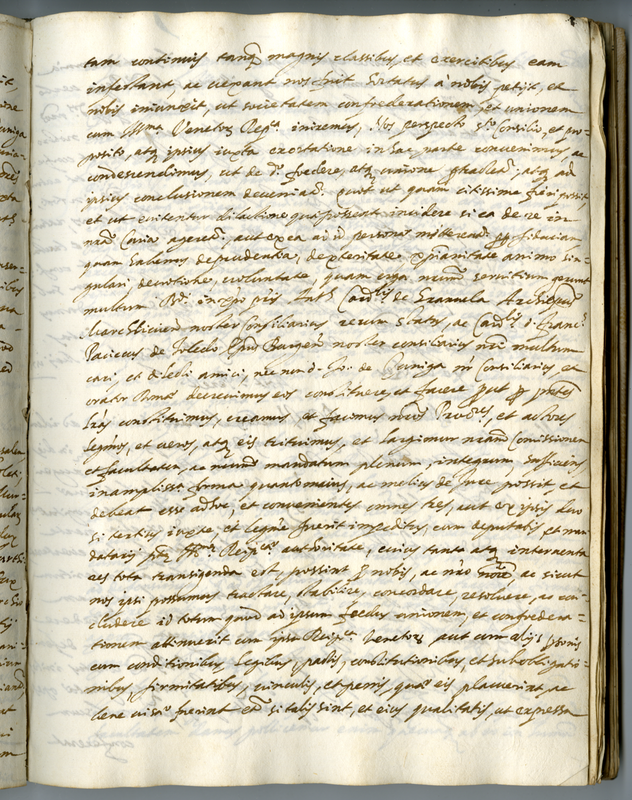 tam continuis tanq̃ magnis classibus, et exercitibus eam
infestant, ac vexant nos fuit hortatus à nobis petijt, et
nobis iniunxit, ut societatem confederationem, et unionem
cum Ill.ma Venetor Rep.ca iniremus, Nos perspecto s.to Consilio, et pro=
posito, atq̃ ipsius iuxta exortatione in hac parte convenimus ac
condescendimus, ut de d.o federe, atq̃ unione, atq̃ ad
ipsius conclusionem deveniad. quod ut quam citissime fieri possit
et ut evitentur dilatione qui possent incidere si ea de re in
nrã Curia agered. aut ex ea ad id personas mittered.
quam habemus de prudentia, dexteritate animo sin=
gulari devotione, voluntate, quam erga nrum̃ servitium gerunt
multum in xpo pris Ant. Card.lis de Granvela Archiepus
noster Consiliarius rerum status, ac Card.lis d. Franc.
Paciecus de Toledo Epus Burgen̄ noster consiliarius nri multum
cari, et dilecti amici, nec non d. Jo. de Zuniga nr̃ Consiliarius et
orator Romæ decrevimus eos constituere, et facere
lrãs constituimus, creamus et facimus nros Procres, et actores
legmos, et veros, atq̃ eis tribuimus, et largimur nrãm Comissionem
et facultatem, ac nrum̃ mandatum plenum, integrum, sufficiens
in amplissᵃ forma quanto maius, ac melius de Jure possit et
debeat esse ad hoc, et convenientes omnes tres, aut ex ipsis duo
si tertius legme fuerit impeditus, cum deputatis et man
datarijs Ill.me Reip.ce authoritate, cuius tanto atq̃ interventu
res tota transigenda est, possint p nobis, ac nrõ nore, ac sicut
nos ipsi possumus tractare, stabilire, concordare, resolvere, ac con
cludere id totum quod ad ipsum fedus unionem, et confedera=
tionem attinuerit cum ipsa Reip.ca Venetor aut cum alijs psonis
cum conditionibus legibus, pactis, constitutionibus, et subobligatio=
nibus, firmitatibus, vinculis, et penis, quæ eis placuerint, ac
bene visa fuerint et si talis sint, et eius qualitatis, ut expressa